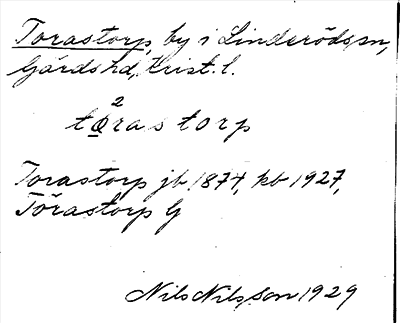 Torastorp, by i Linderödssn,
Gärds hd, Krist. l.
2
tørastorp
Torastorp jb 1874, kb 1927,
Törastorp G
Nils Nilsson 1929